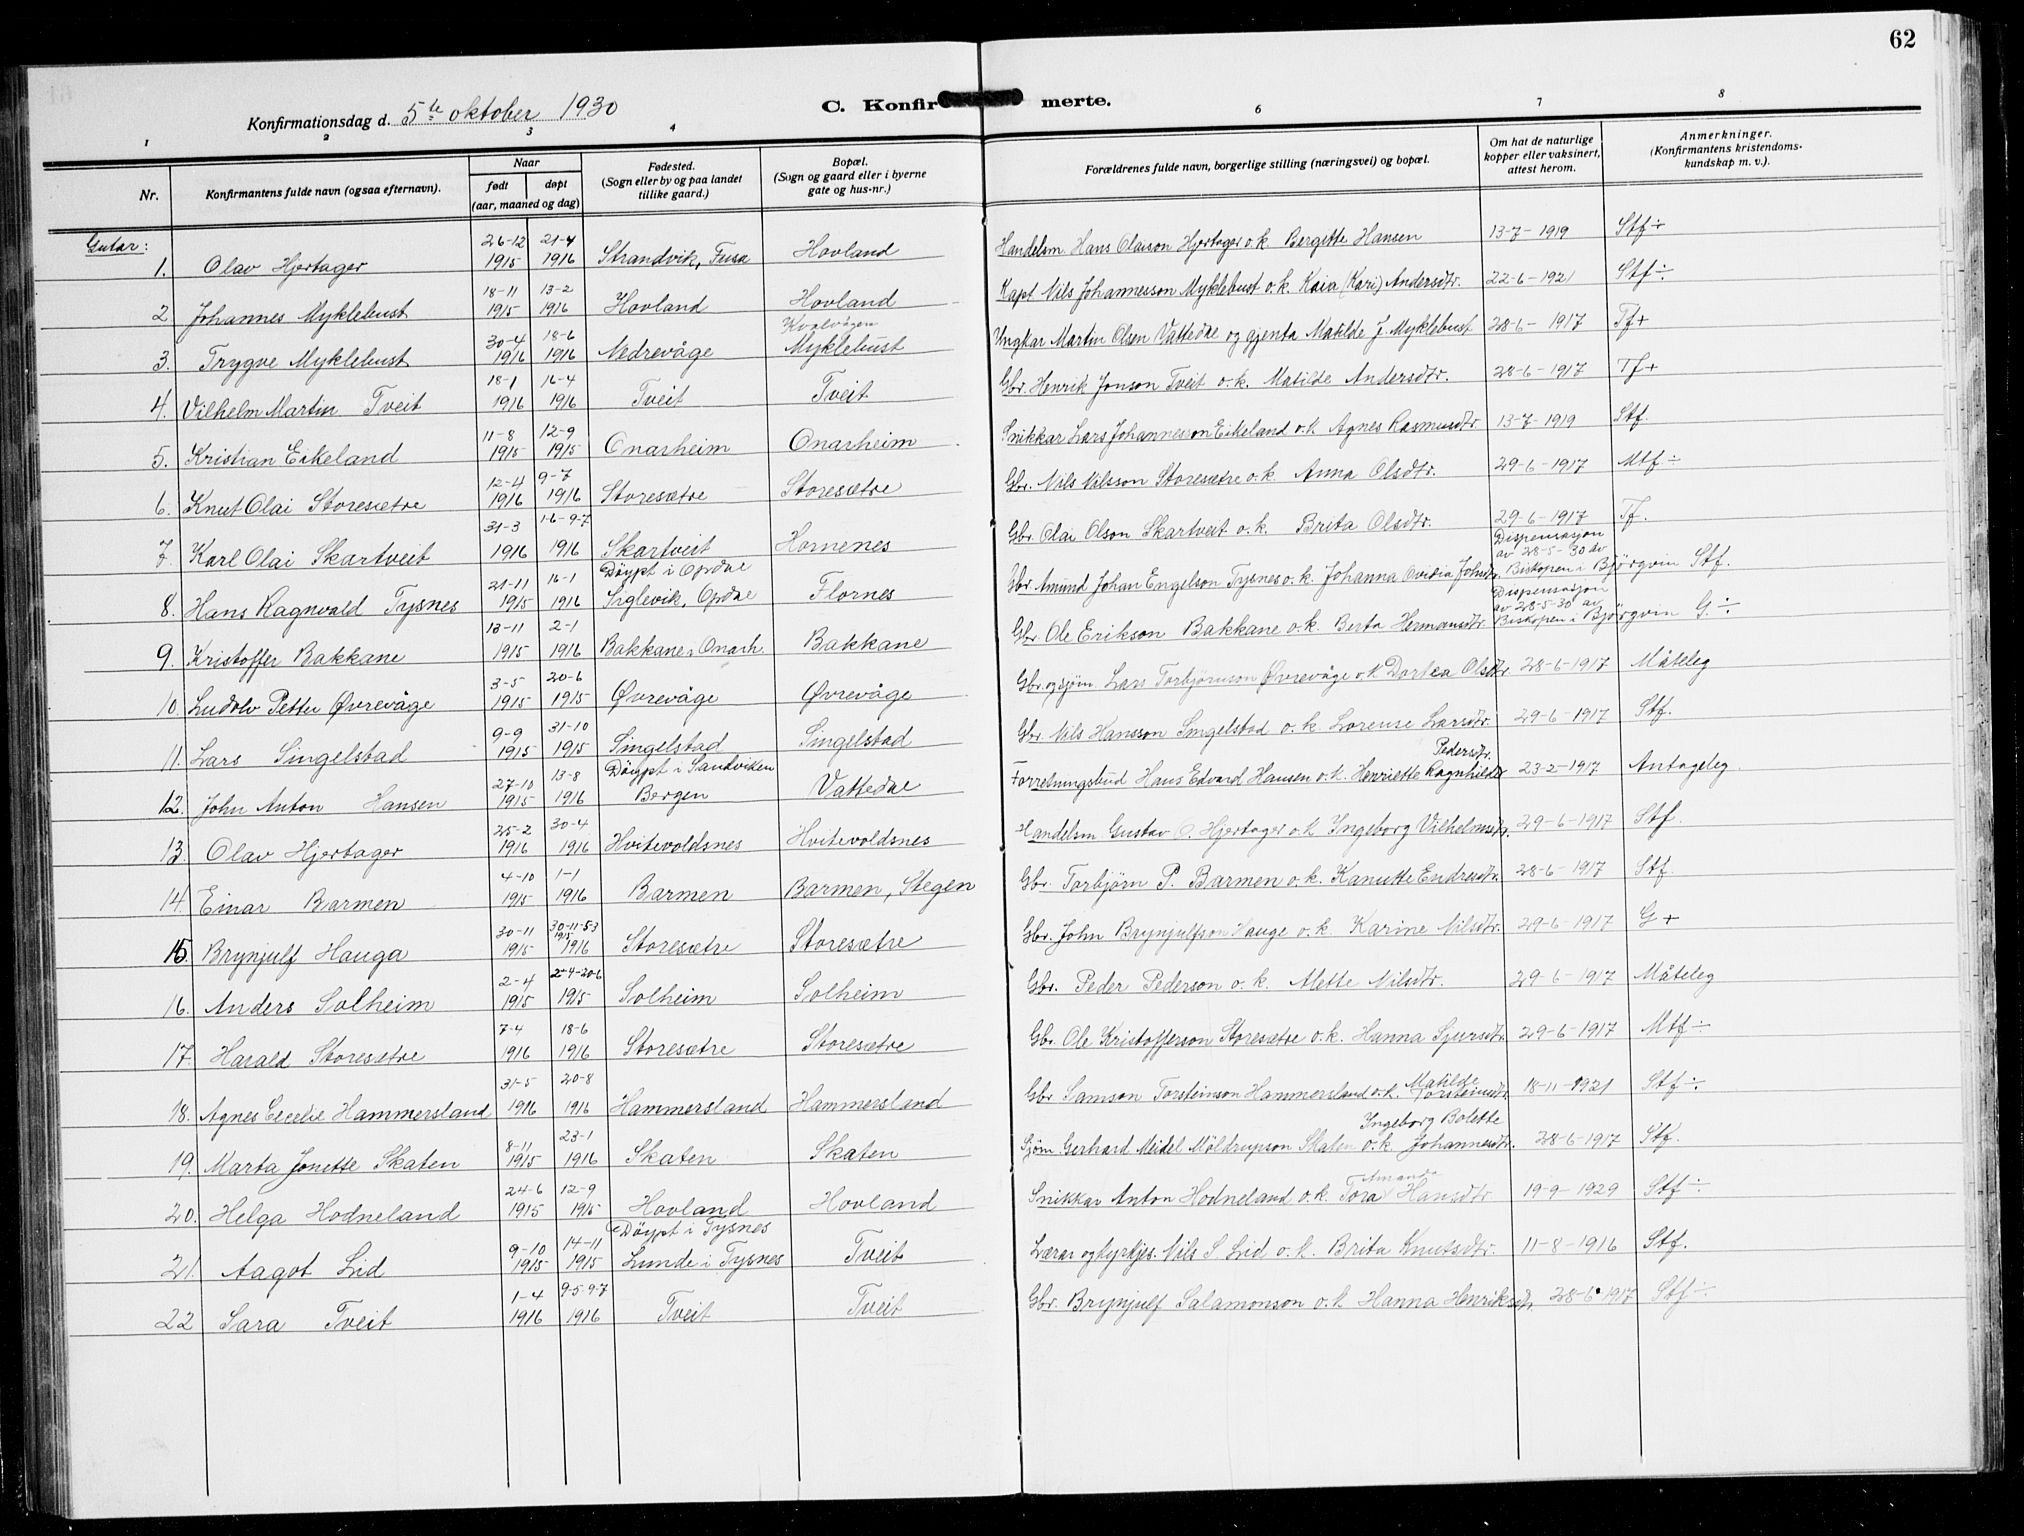 62
Konfirmationsdag d. 5te oktober 1930
C. Konfirmerte.
1 2 3 4 6 7 8
Nr. Konfirmantens fulde navn (ogsaa efternavn). Naar født døpt (aar, maaned og dag) Fødested. (Sogn eller by og paa landet tillike gaard.) Bopæl. (Sogn og gaard eller i byerne gate og hus-nr.) Forældrenes fulde navn, borgerlige stilling (næringsvei) og bopæl. Om hat de naturlige kopper eller vaksinert, attest herom. Anmerkninger. (Konfirmantens kristendoms-kundskap m. v.).
Gutar:
1. Olav Hjertager 26-12 1915 21-4 1916 Strandvik, Fusa Hovland Handelsm. Hans Olaison Hjertager o.k. Bergitte Hansen 13-7-1919 Stf ÷
2 Johannes Myklebust 18-11 1915 13-2 1916 Hovland Hovland Kapt. Nils Johannesson Myklebust o.k. Kaia (Kari) Andersdtr. 22-6-1921 Stf ÷
3. Trygve Myklebust 30-4 1916 18-6 1916 Nedrevåge Kvalvågen Myklebust Ungkar Martin Olsen Vattedal og gjenta Matilde J. Myklebust 28-6-1917 Tf+
4. Vilhelm Martin Tveit 18-1 1916 16-4 1916 Tveit Tveit Gbr. Henrik Jonson Tveit o.k. Matilde Andersdtr. 28-6-1917 Tf+
5. Kristian Eikeland 11-8 1915 12-9 1915 Onarheim Onarheim Snikkar Lars Johannesson Eikeland o.k. Agnes Rasmusdtr. 13-7-1919 Stf.
6. Knut Olai Storesætre 12-4 1916 9-7 1916 Storesætre Storesætre Gbr. Nils Nilsson Storesætre o.k. Anna Olsdtr. 29-6-1917 Mtf ÷
7. Karl Olai Skartveit 31-3 1916 1-6-9-7 1916 Skartveit Hornenes Gbr. Olai Olson Skartveit o.k. Brita Olsdtr. 29-6-1917 Tf.
8. Hans Ragnvald Tysnes 21-11 1915 16-1 1916 Döypt i Opdal Siglevik, Opdal Flornes Gbr. Amund Johan Engelson Tysnes o.k. Johanna Ovidia Johsdtr. Dispensasjon av 28-5-30 av Biskopen i Björgvin Stf.
9. Kristoffer Bakkane 13-11 1915 2-1 1916 Bakkane, Onarh. Bakkane Gbr. Ole Erikson Bakkane o.k. Berta Hermansdtr. Dispensasjon av 28-5-30 av Biskopen i Björgvin G ÷
10. Ludolv Petter Øvrevåge 3-5 1915 20-6 1915 Øvrevåge Øvrevåge Gbr. og sjøm. Lars Torbjörnson Øvrevåge o.k. Dortea Olsdtr. 28-6-1917 Måteleg
11. Lars Singelstad 9-9 1915 31-10 1915 Singelstad Singelstad Gbr. Nils Hansson Singelstad o.k. Lorense Larsdtr. 29-6-1917 Stf.
12. John Anton Hansen 27-10 1915 13-8 1916 Döypt i Sandviken Bergen Vattedal Forretningsbud Hans Edvard Hansen o.k. Henriette Ragnhild Pedersdtr. 23-2-1917 Antageleg
13. Olav Hjertager 25-2 1916 30-4 1916 Hvitevoldsnes Hvitevoldsnes Handelsm. Gustav O. Hjertager o.k. Ingeborg Vilhelmsdtr. 29-6-1917 Stf.
14. Einar Barmen 4-10 1915 1-1 1916 Barmen Barmen, Stegen Gbr. Torbjörn P. Barmen o.k. Kanutte Endresdtr. 28-6-1917 Stf.
15. Brynjulf Hauga 30-11 1915 30-11-5-3 1915 1916 Storesætre Storesætre Gbr. John Brynjulfson Hauge o.k. Karine Nilsdtr. 29-6-1917 G +
16. Anders Solheim 2-4 1915 2-4-20-6 1915 Solheim Solheim Gbr. Peder Pederson o.k. Mette Nilsdtr. 29-6-1917 Måteleg
17. Harald Storesætre 7-4 1916 18-6 1916 Storesætre Storesætre Gbr. Ole Kristofferson Storesætre o.k. Hanna Sjursdtr. 29-6-1917 Mtf ÷
18. Agnes Cecelie Hammersland 31-5 1916 20-8 1916 Hammersland Hammersland Gbr. Samson Torsteinson Hammersland o.k. Matilde Torsteinsdtr. 18-11-1921 Stf ÷
19. Marta Jonette Skaten 8-11 1915 23-1 1916 Skaten Skaten Sjöm. Gerhard Meidel Möldrupson Skaten o.k. Ingeborg Bolette Johannesdtr. 28-6-1917 Stf.
20. Helga Hodneland 24-6 1915 12-9 1915 Hovland Hovland Snikkar Anton Hodneland o.k. Tora Amanda Hansdtr. 19-9-1929 Stf ÷
21. Aagot Lid 9-10 1915 14-11 1915 Döypt i Tysnes Lunde i Tysnes Tveit Lærar og kyrkjes. Nils S. Lid o.k. Brita Knutsdtr. 11-8-1916 Stf.
22 Sara Tveit 1-4 1916 9-5-9-7 1916 Tveit Tveit Gbr. Brynjulf Salamonson o.k. Hanna Henriksdtr. 28-6-1917 Stf ÷